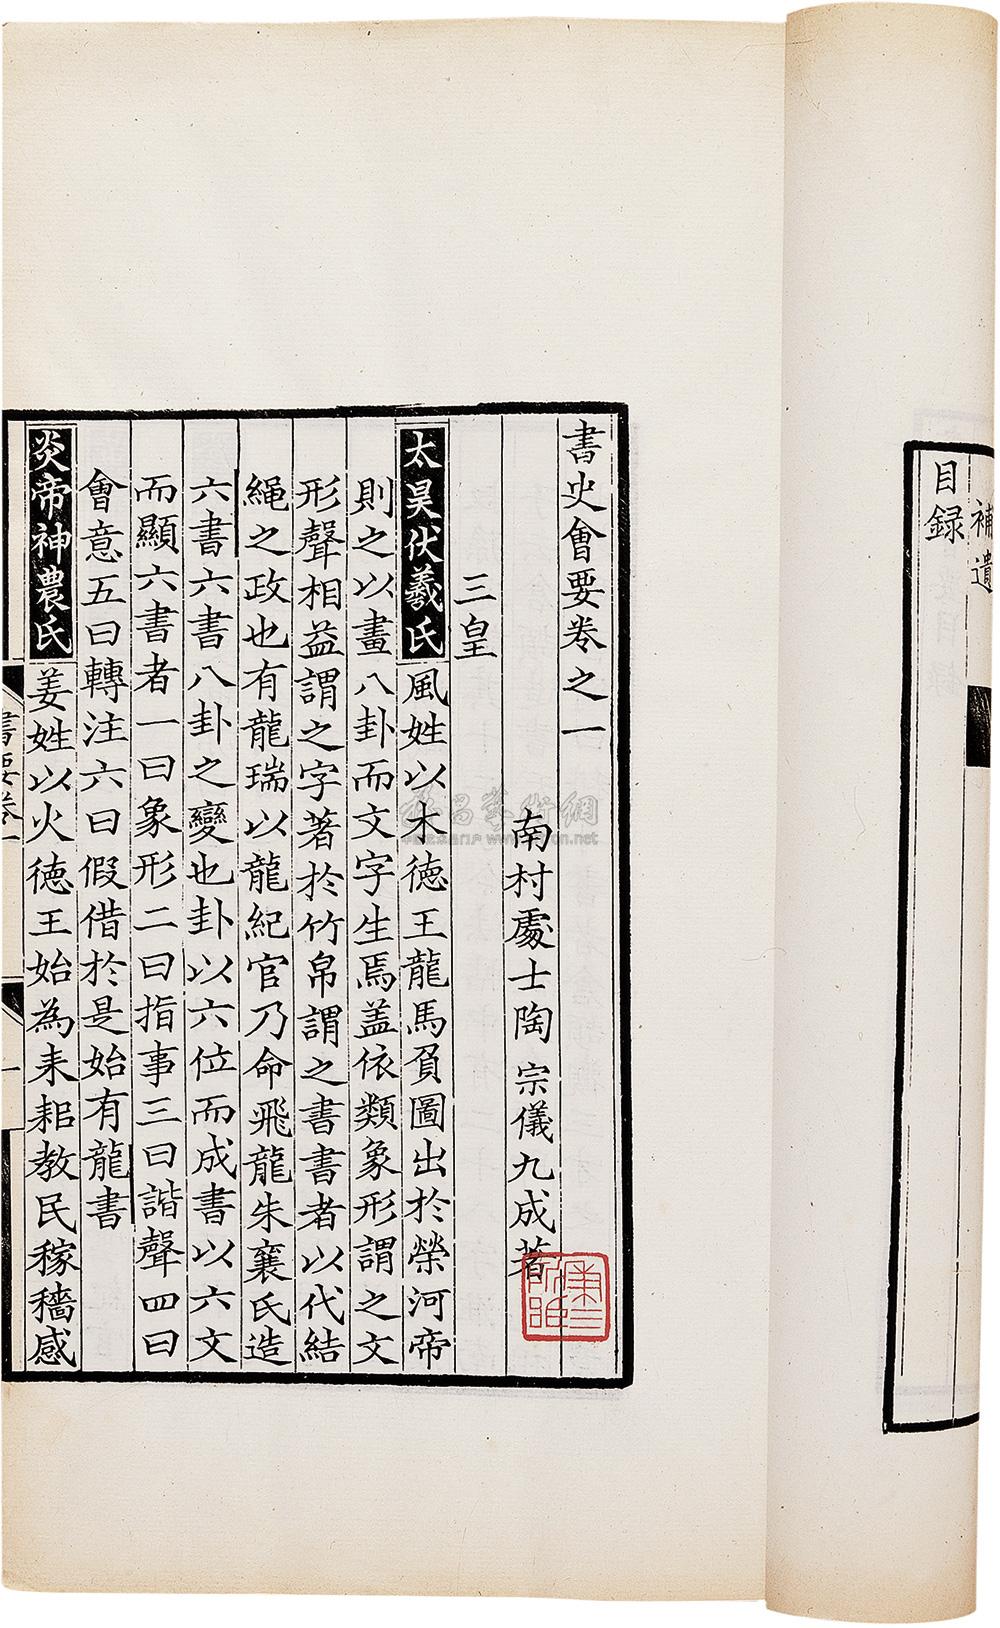 補遺
目録
書史會要卷之一
南村處士陶宗儀九成著
三皇
太昊伏羲氏風姓以木徳王龍馬負圖出於榮河帝
則之以畫八卦而文字生焉盖依類象形謂之文
形聲相益謂之字著於竹帛謂之書書者以代結
繩之政也有龍瑞以龍紀官乃命飛龍朱襄氏造
六書六書八卦之變也卦以六位而成書以六文
而顯六書者一曰象形二曰指事三曰諧聲四曰
會意五曰轉注六曰假借於是始有龍書
炎帝神農氏姜姓以火徳王始為耒耜教民稼穡感
書要卷一
一